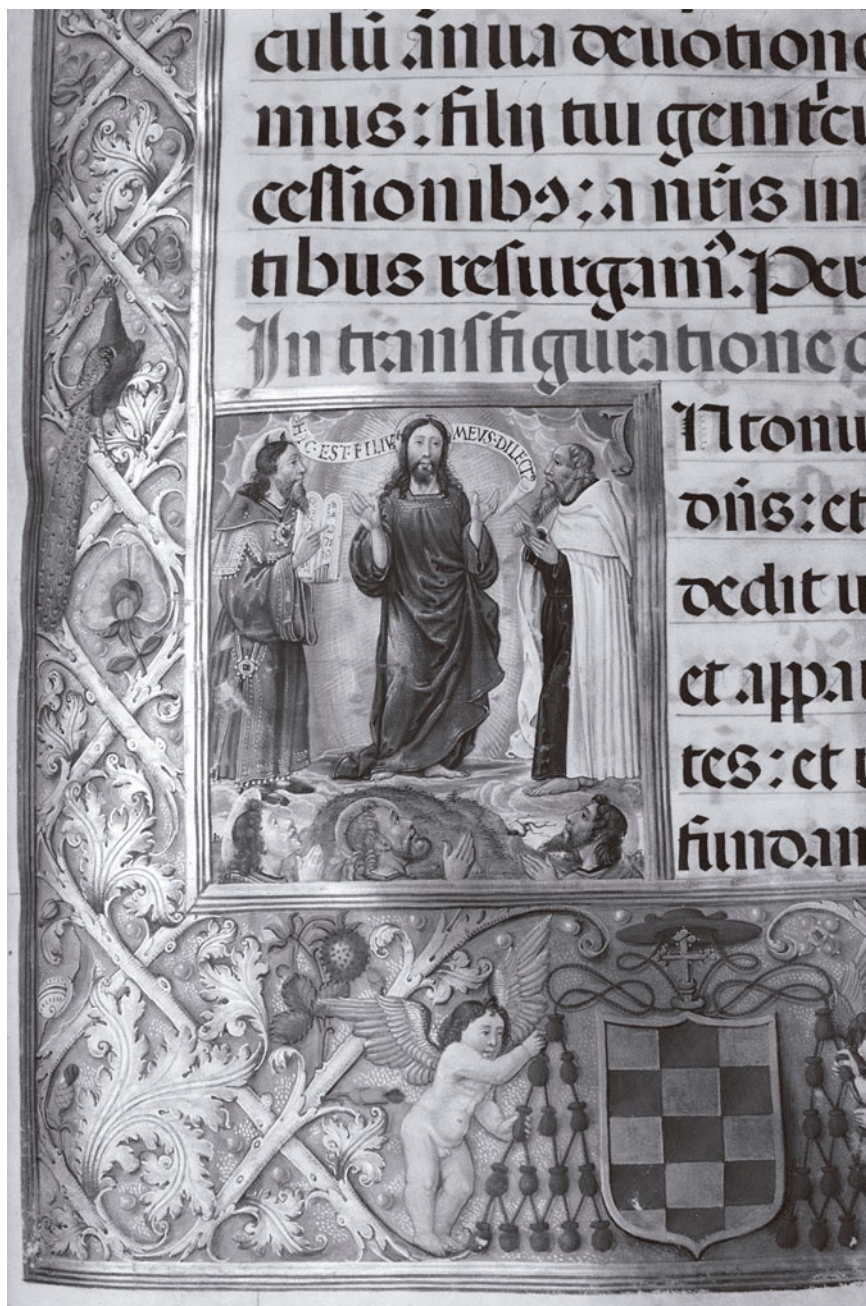 culū ānua deuotione
mus: filij tui
cessionibꝯ: a nr̄is in
tibus resurgamꝰ. Per
In transfiguratione
HIC·EST·FILIVS MEVS·DILECTꝰ
Ntonu
dn̄s: et
dedit u
et appa
tes: et
fundam